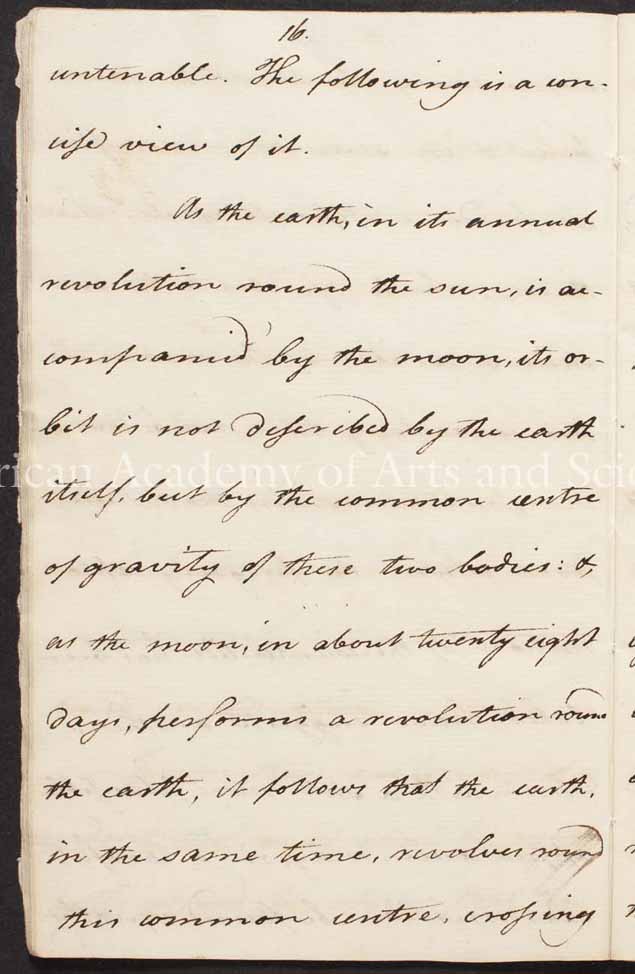 16.
untenable. The following is a con-
cise view of it.
As the earth, in its annual
revolution round the sun, is ac-
companied by the moon, its or-
bit is not described by the earth
rican Academy of Arts and Scie
itself, but by the common centre
of gravity of these two bodies: &,
as the moon, in about twenty eight
days, performs a revolution round
the earth, it follows that the earth,
in the same time, revolves round
this common centre, crossing